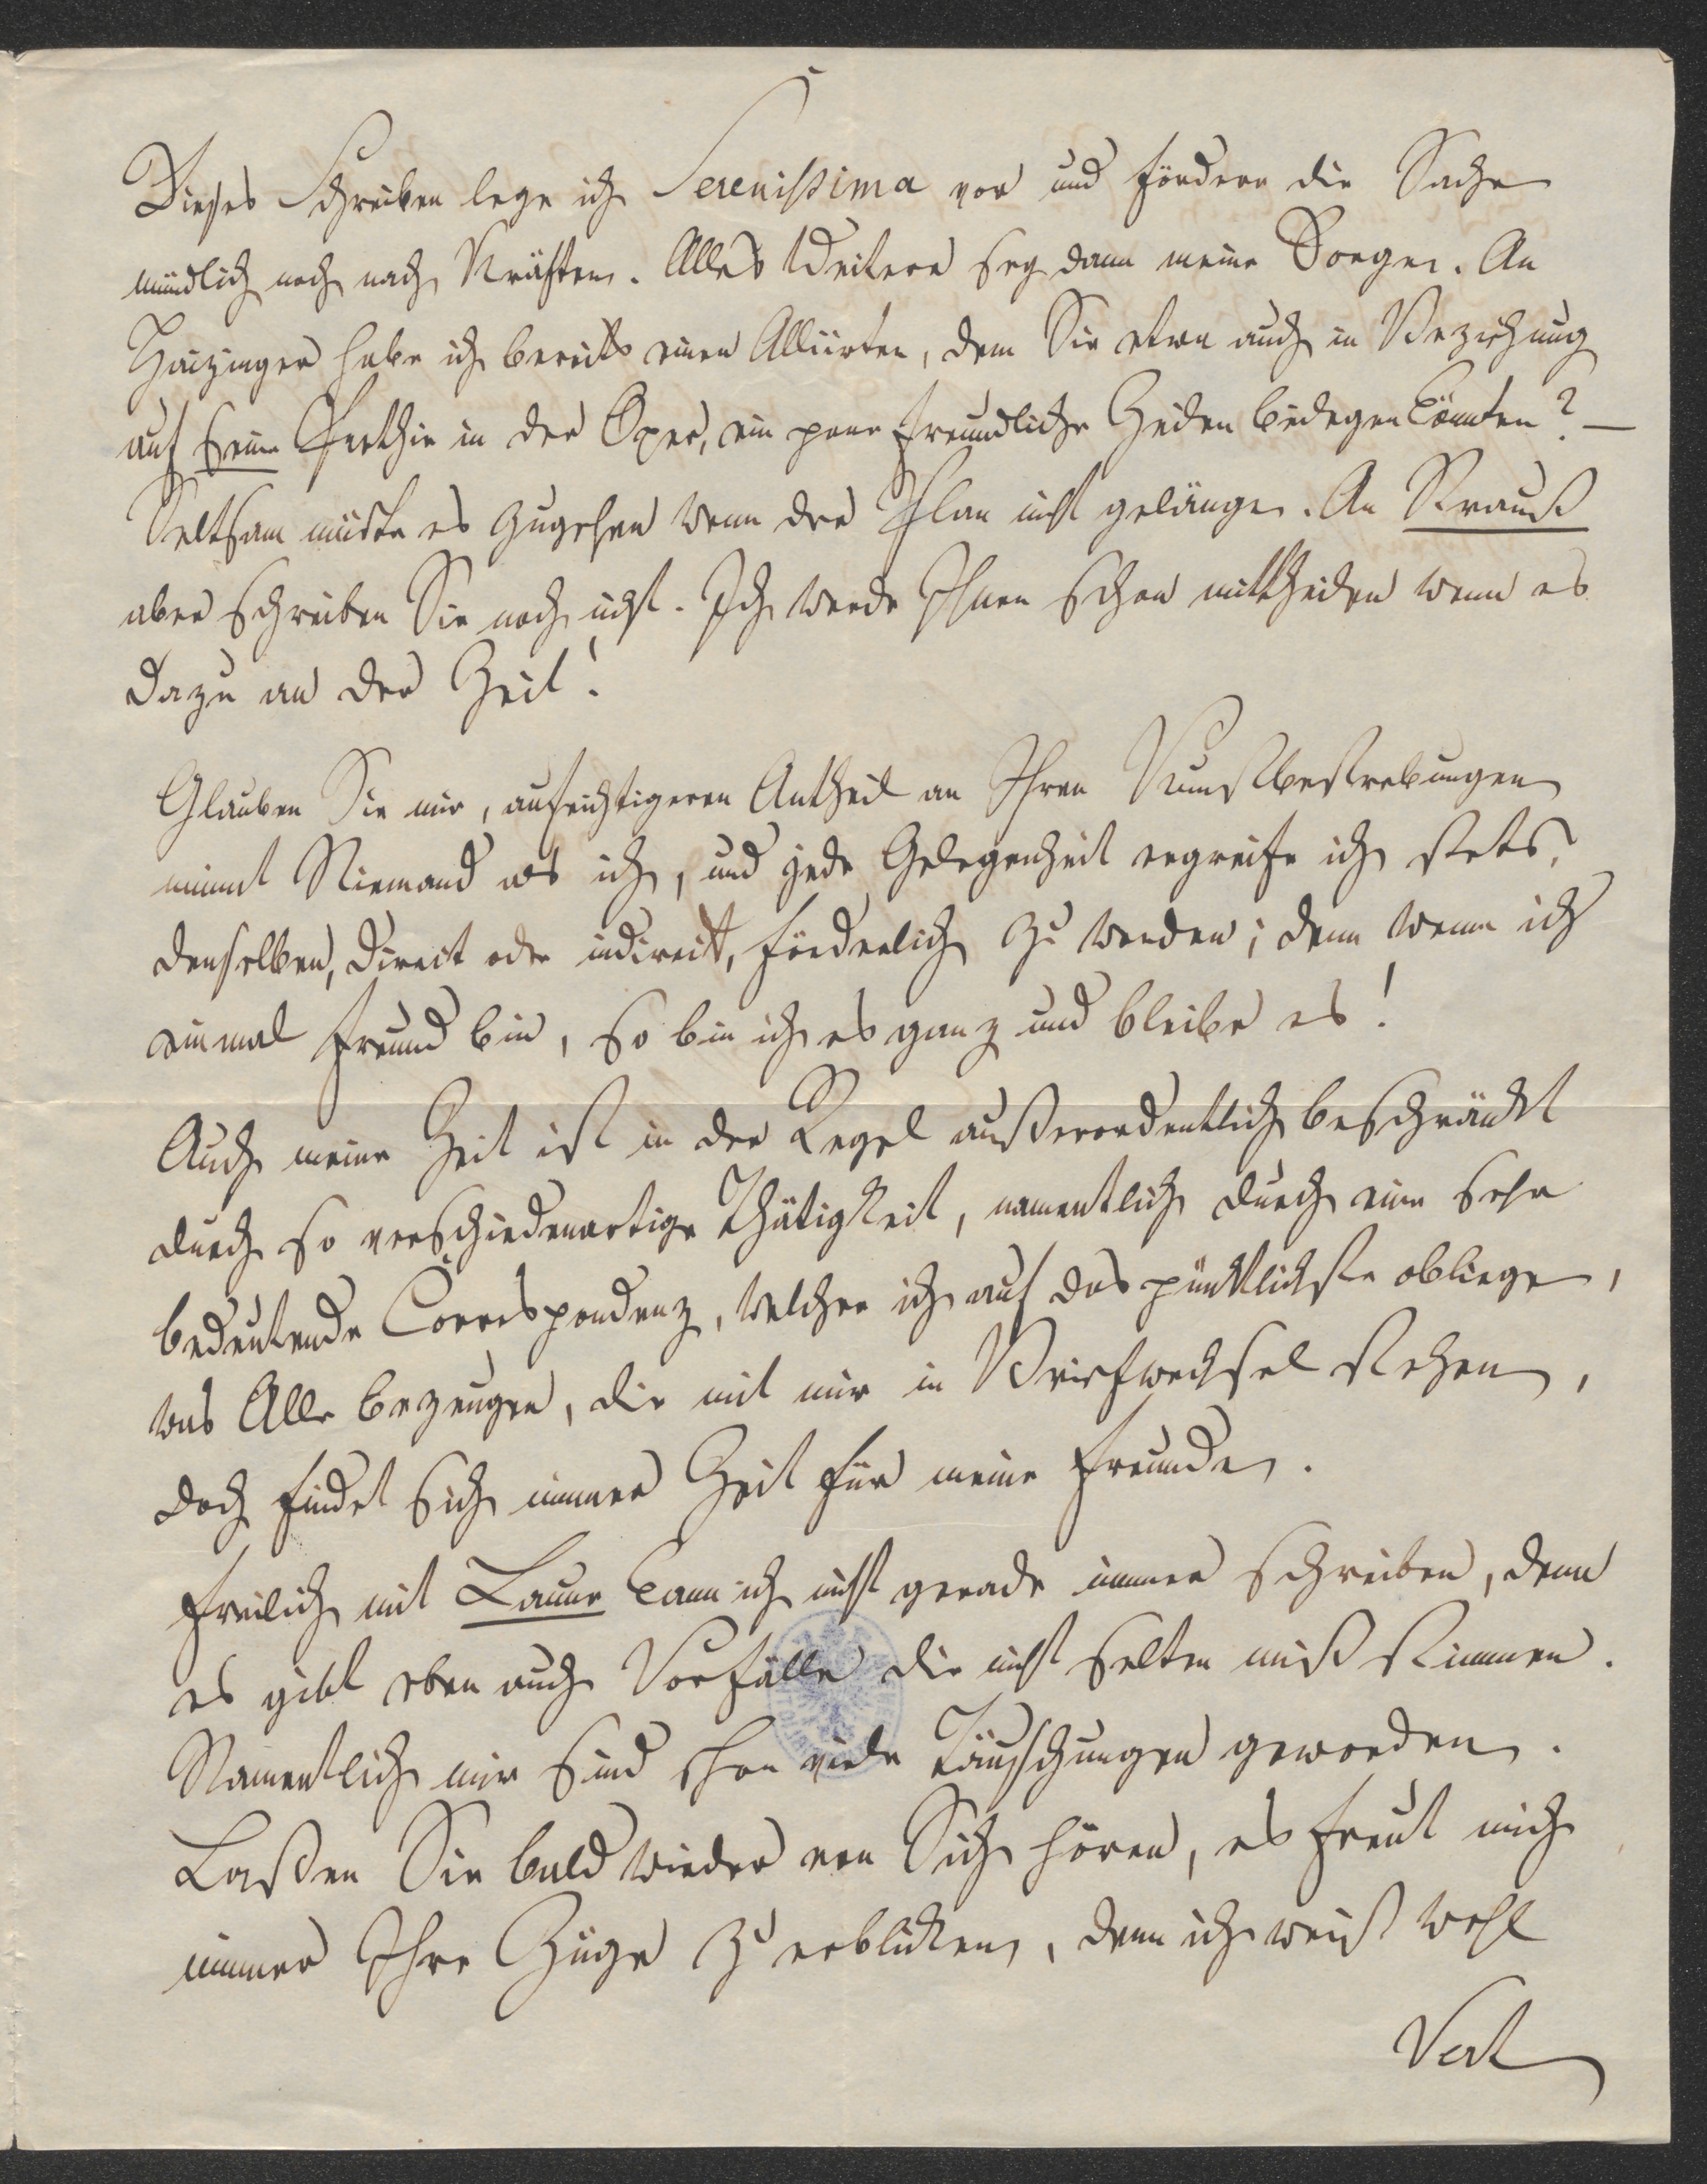 Dieses Schreiben lege ich Serenißima vor und fördere die Sache
mündlich noch nach Kräften. Alles Weitere sey dann meine Sorge. An
Haizinger habe ich bereits einen Alliirten, dem Sie etwa auch in Beziehung
auf seine Parthie in der Oper, ein paar freundliche Zeilen beilegen könnten? —
Seltsam müßte es zugehen wenn der Plan nicht gelänge. An Krauß
aber schreiben Sie noch nicht. Ich werde Ihnen schon mittheilen wenn es
dazu an der Zeit!
Glauben Sie mir, aufrichtigeren Antheil an Ihren Kunstbestrebungen
nimmt Niemand als ich, und jede Gelegenheit ergreife ich stets,
denselben, direct oder indirect, förderlich zu werden; denn wenn ich
einmal Freund bin, so bin ich es ganz und bleibe es!
Auch meine Zeit ist in der Regel außerordentlich beschränkt
durch so verschiedenartige Thätigkeit, namentlich durch eine sehr
bedeutende Correspondenz, welcher ich auf das pünktlichste obliege,
was Alle bezeugen, die mit mir in Briefwechsel stehen,
doch findet sich immer Zeit für meine Freunde.
Freilich mit Laune kann ich nicht gerade immer schreiben, denn
es gibt eben auch Vorfälle die nicht selten miß stimmen.
Namentlich mir sind schon viele Täuschungen geworden.
Laßen Sie bald wieder von Sich hören, es freut mich
immer Ihre Züge zu erblicken, denn ich weiß wohl
Vert